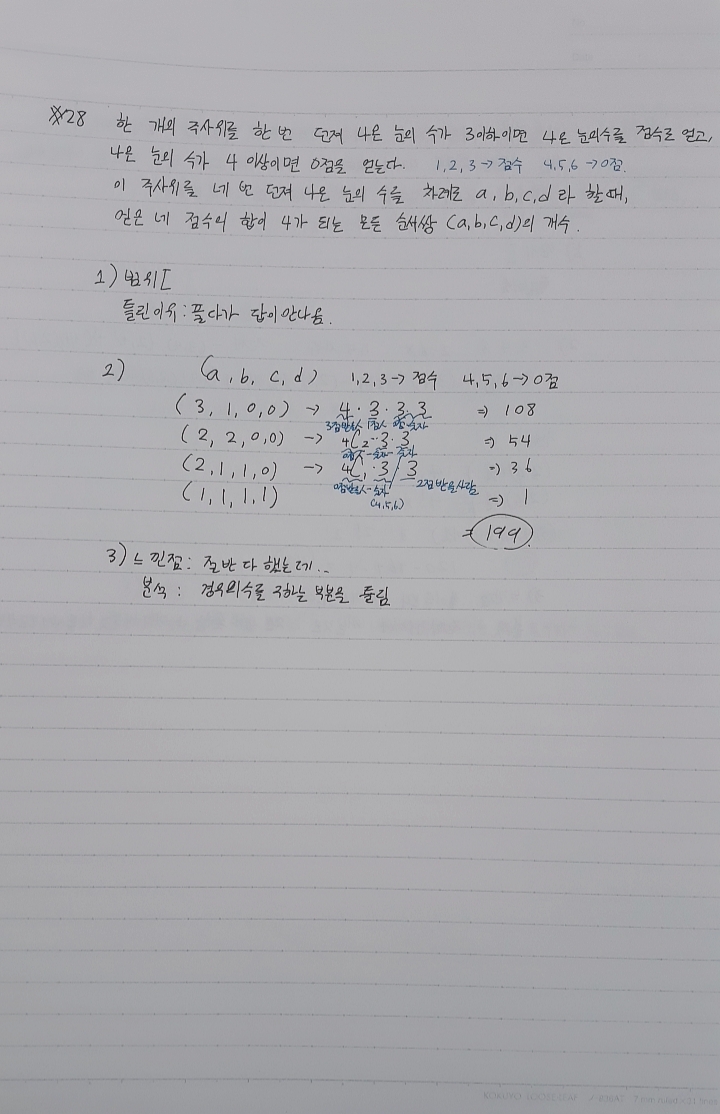 ※28 한 개의 주사위를 한 번 던져 나온 눈의 수가 3이하이면 나온 눈의수를 점수로 얻고,
나온 눈의 수가 4 이상이면 0점을 얻는다. 1,2,3→점수 4,5,6→0점.
이 주사위를 네 번 던져 나온 눈의 수를 차례로 a, b, c, d 라 할 때,
얻은 네 점수의 합이 4가 되는 모든 순서쌍 (a,b,c,d)의 개수.
1) 범위[
틀린이유: 풀다가 답이안나옴.
2) (a, b, c, d) 1,2,3→점수 4,5,6→0점
(3, 1, 0, 0) → 4·3·3·3 => 108
3점받을사람 1점사람
(2, 2, 0, 0) → 4C2·3·3 => 54
(2, 1, 1, 0) → 4C1·3/3 => 36
2점받을사람
(4,5,6)
(1, 1, 1, 1) => 1
=199.
3) 느낀점: 절반 다 했는데..
분석: 경우의수를 구하는 부분을 틀림